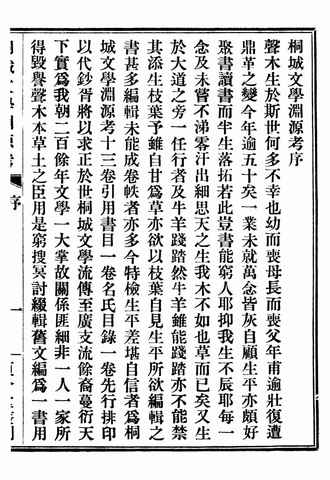 桐城文學淵源考序
聲木生於斯世何多不幸也幼而喪母長而喪父年甫逾壯復遭
鼎革之變今年逾五十矣一業未就萬念皆灰自顧生平亦頗好
聚書讀書而半生落拓若此豈書能窮人耶抑我生不辰耶每一
念及未嘗不涕零汗出細思天之生我木不如也草而已矣又生
於大道之旁一任行者及牛羊踐踏然牛羊雖能踐踏亦不能禁
其添生枝葉予雖自甘爲草亦欲以枝葉自見生平所欲編輯之
書甚多編輯未能成卷帙者亦多今特檢生平差堪自信者爲桐
城文學淵源考十三卷引用書目一卷名氏目錄一卷先行排印
以代鈔胥將以求正於世桐城文學流傳至廣支流餘裔蔓衍天
下實爲我朝二百餘年文學一大掌故關係匪細非一人一家所
得毀譽聲木本草土之臣用是窮搜冥討綴輯舊文編爲一書用
序
一